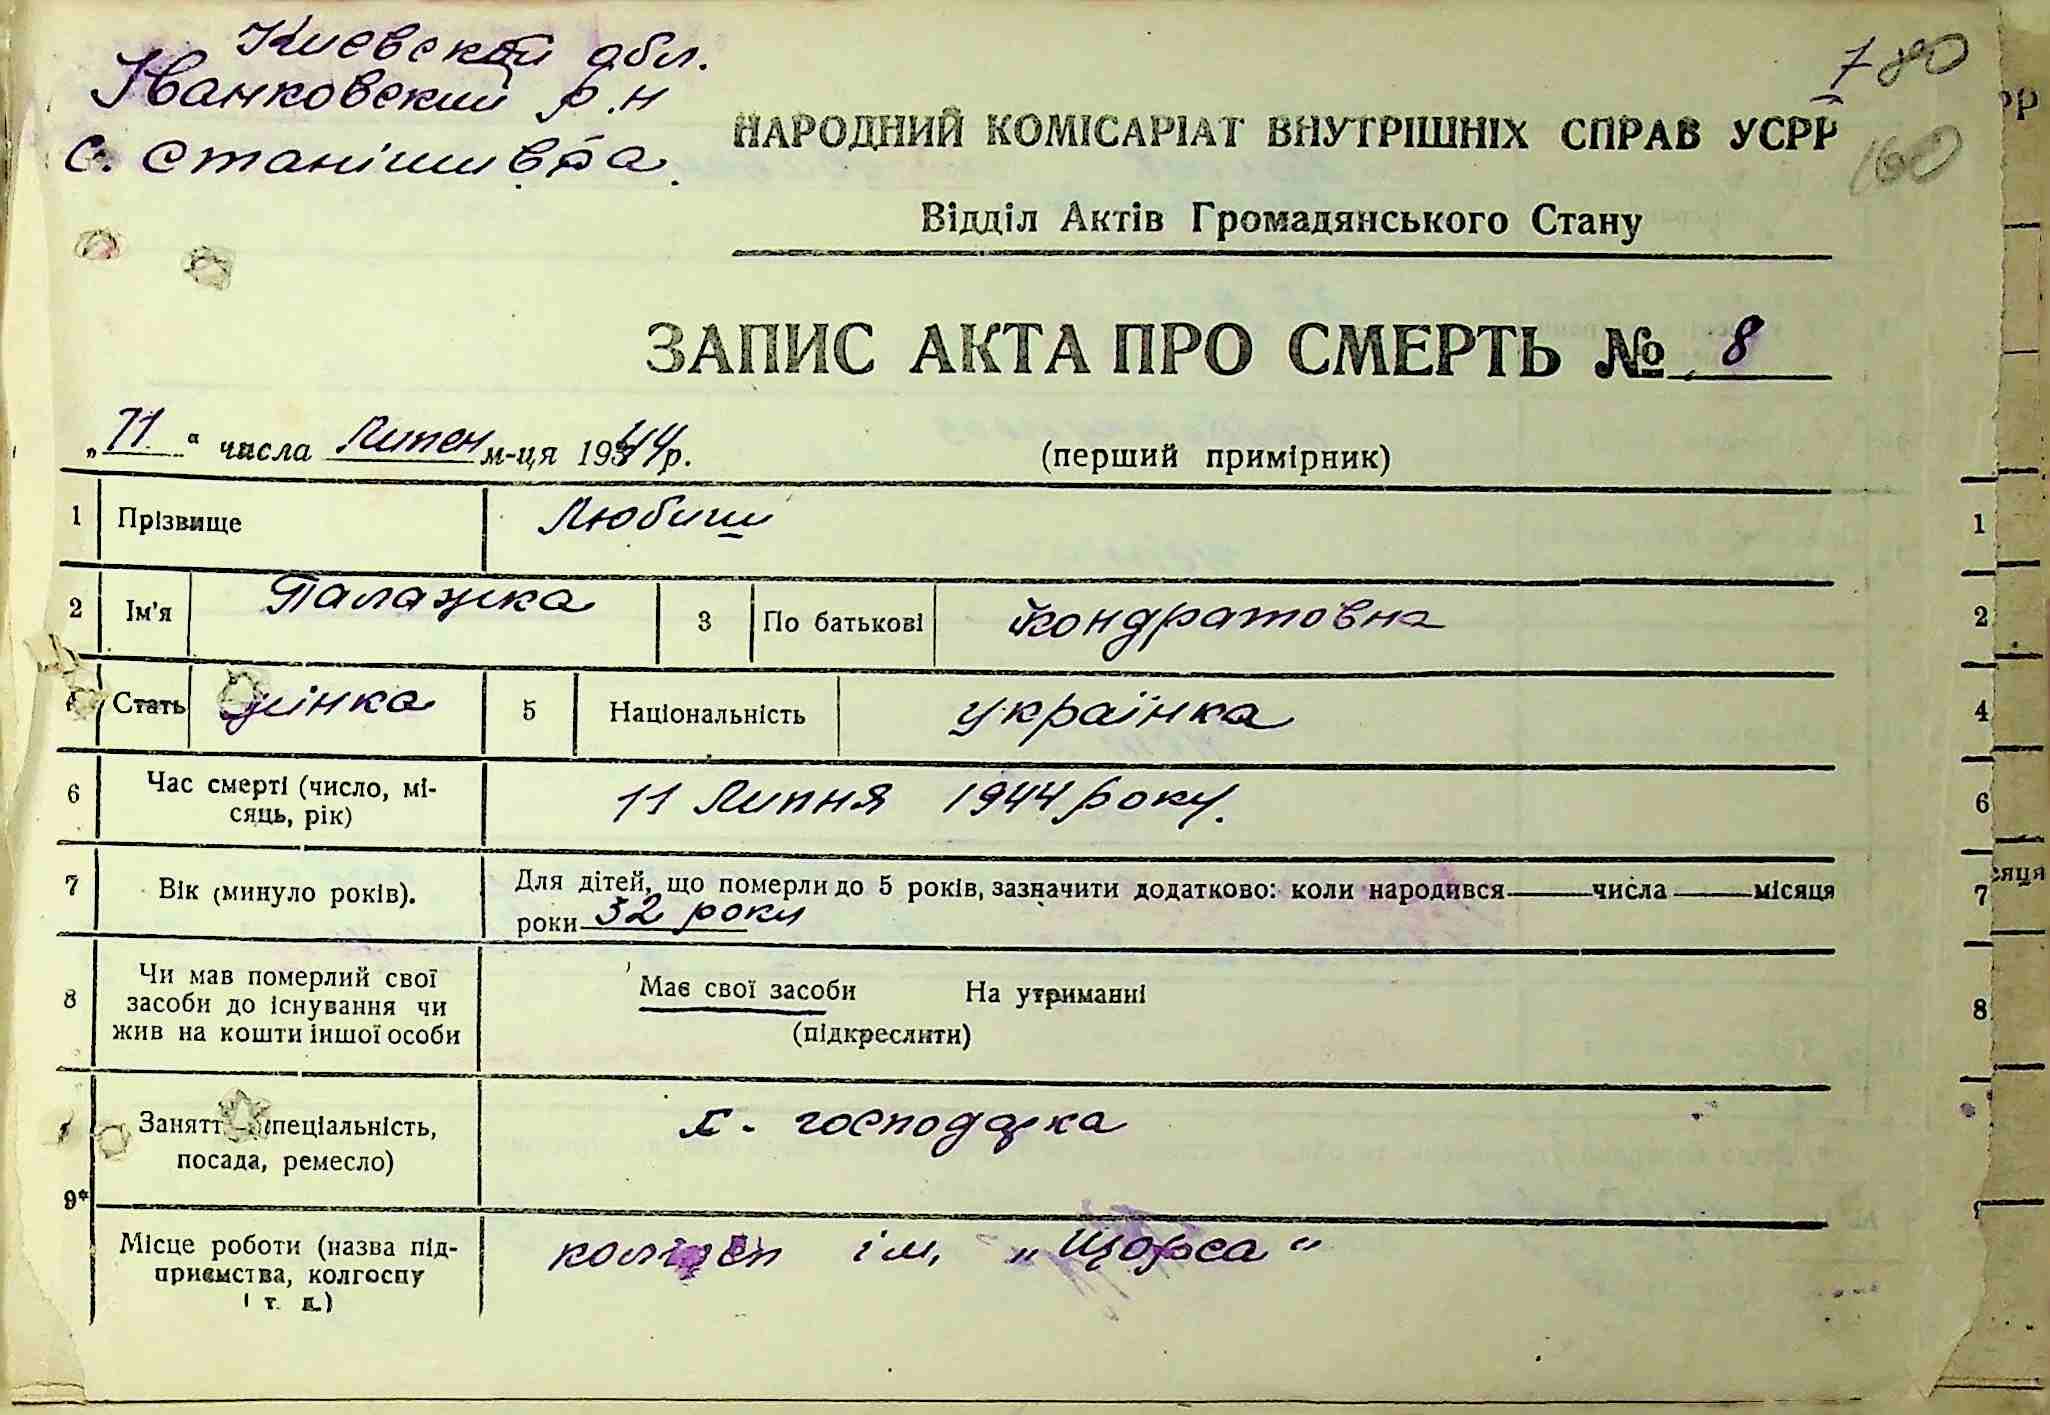 Киевской обл.
Іванковский р-н
с. Станішивка.
7 80
160
НАРОДНИЙ КОМІСАРІАТ ВНУТРІШНІХ СПРАВ УСРР
Відділ Актів Громадянського Стану
ЗАПИС АКТА ПРО СМЕРТЬ № 8
„11“ числа Липен м-ця 1944 р.
(перший примірник)
1 Прізвище Любиш 1
2 Ім'я Палажка 3 По батькові Кондратовна 2
4 Стать жінка 5 Національність українка 4
6 Час смерті (число, мі-
сяць, рік) 11 Липня 1944 року. 6
7 Вік (минуло років). Для дітей, що померли до 5 років, зазначити додатково: коли народився числа місяця 7
роки 32 роки
8 Чи мав померлий свої
засоби до існування чи
жив на кошти іншої особи
Має свої засоби На утриманні 8
(підкреслити)
9* Заняття (спеціальність,
посада, ремесло) х. - господарка
Місце роботи (назва під-
приємства, колгоспу
і т. д.) колгосп ім. „Щорса“